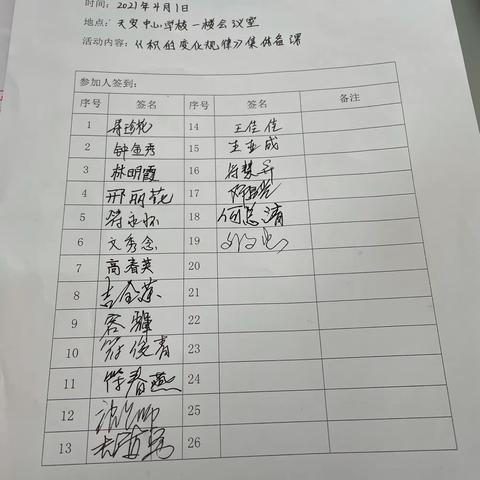 时间: 2021年4月1日
地点: 天安中心学校一楼会议室
活动内容: 《积的变化规律》集体备课
参加人签到:
序号 签名 序号 签名 备注
1 14 王佳佳
2 钟鱼秀 15 王亚成
3 林明霞 16
4 邢丽花 17
5 符永怀 18 何总清
6 文秀念 19
7 高春英 20
8 吉金莲 21
9 容雅 22
10 符俊青 23
11 符春燕 24
12 25
13 26